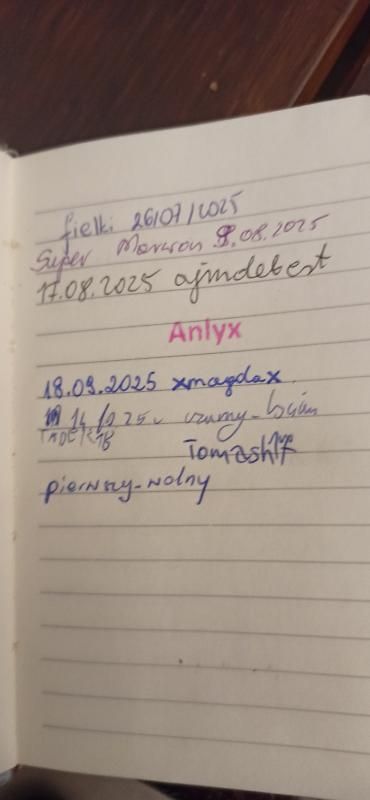 fielki 26/07/2025
Super Marwron 8.08.2025
17.08.2025 ajmdebest
Anlyx
18.09.2025 xmagdax
14/10 25r
Tomash17
pierwszy-wolny